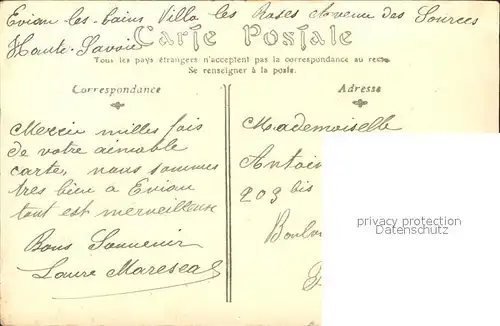 Evian-les-bains Villa les Roses Avenue des Sources
Haute-Savoie
Carte Postale
Tous les pays étrangers n'acceptent pas la correspondance au recto
Se renseigner à la poste.
Correspondance
Adresse
Mercie milles fois
de votre aimable
carte, nous sommes
tres bien à Evian
tout est merveilleuse
Bons Souvenir
Laure Maresca
Mademoiselle
Antoi
203 bis
Boulev
privacy protection